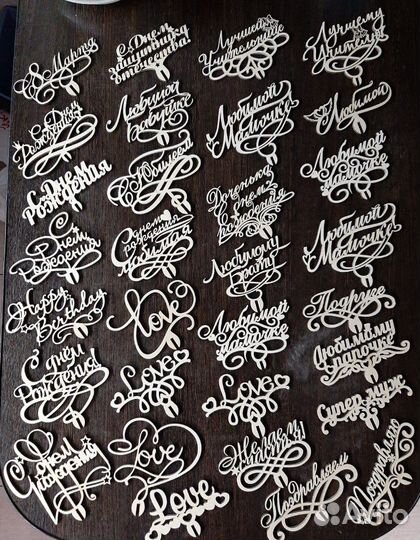 8 Марта
С Днём
Защитника
отечества!
Лучшей
Учительнице
Лучшему
Учителю
С Днём
Рождения!
Любимой
Бабушке
Любимой
Мамочке
Любимой
С Днём
Рождения
С Юбилеем
Доченька
С Днем
рождения
Любимой
Мамочке
С
Днём
Рождения
С днем
рождения
любимая
Любимому
Любимой
Мамочке
Happy
Birthday
Love
Любимой
мамочке
Подруге
С днём
Рождения!
Love
Love
Любимому
папочке
Супер муж
С Днем
рождения
Love
Love
Желаем
Поздравляем
Поздравляю
Avito